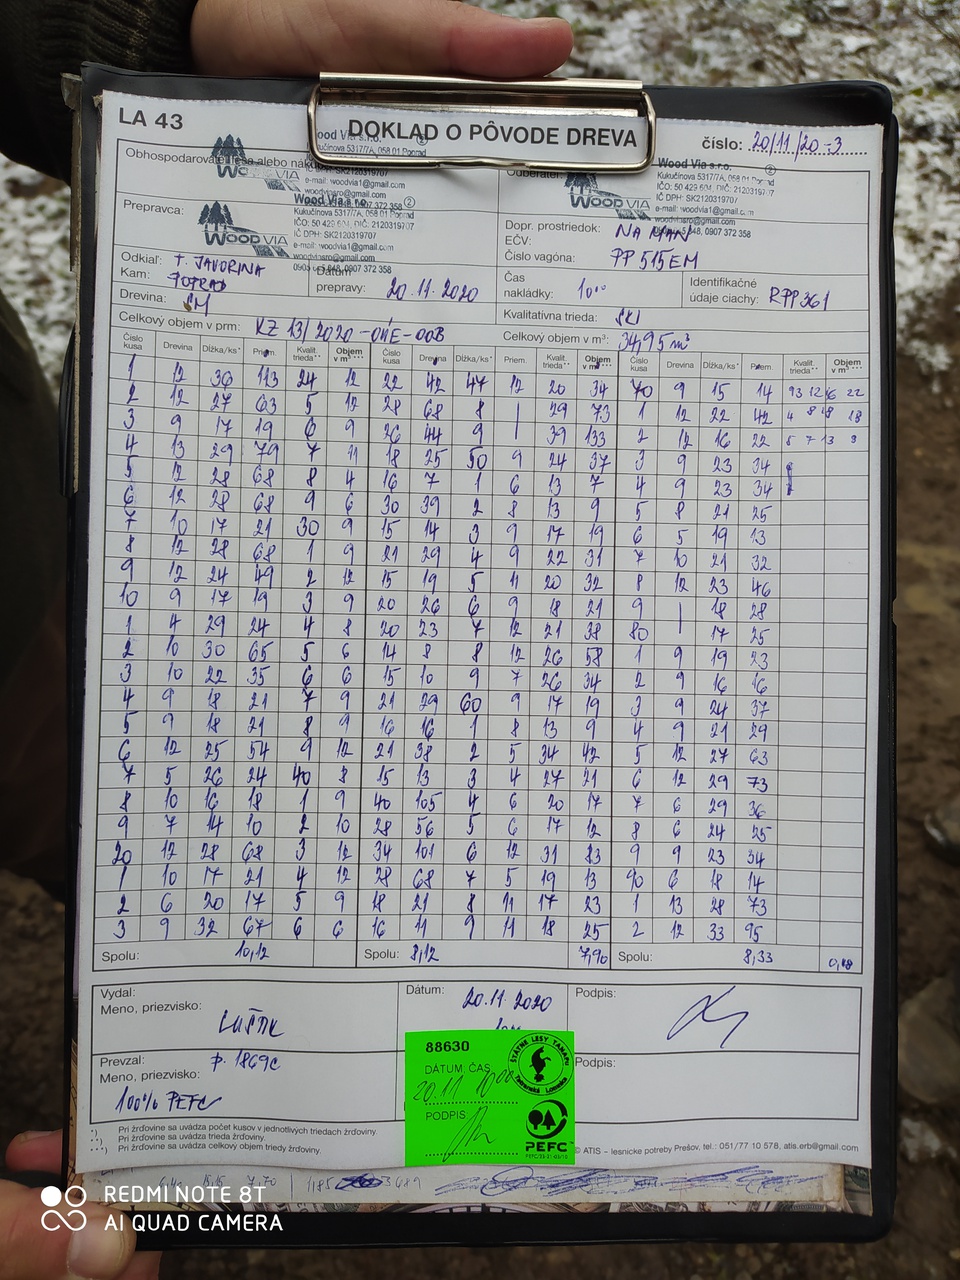 LA 43
DOKLAD O PÔVODE DREVA
číslo: 20/11/20-3
Obhospodarovateľ lesa alebo
Wood Via s.r.o.
Kukučínova 5317/7A, 058 01 Poprad
IČ DPH: SK2120319707
e-mail: woodvia1@gmail.com
woodviasro@gmail.com
Odberateľ:
Wood Via s.r.o. 2
Kukučínova 5317/7A, 058 01 Poprad
IČO: 50 429 604, DIČ: 2120319707
IČ DPH: SK2120319707
e-mail: woodvia1@gmail.com
woodviasro@gmail.com
Prepravca:
WOOD VIA
Wood Via s.r.o. 2
Kukučínova 5317/7A, 058 01 Poprad
IČO: 50 429 604, DIČ: 2120319707
IČ DPH: SK2120319707
e-mail: woodvia1@gmail.com
woodviasro@gmail.com
0907 372 358
WOOD VIA
Dopr. prostriedok: NA MAN
EČV:
Číslo vagóna: PP 515EM
Odkiaľ: T. JAVORINA
Kam: POPRAD
Dátum
prepravy: 20.11.2020
Čas
nakládky: 10⁰⁰
Identifikačné
údaje ciachy: RPP361
Drevina: SM
Kvalitatívna trieda:
Celkový objem v prm: KZ 13/2020-OHE-OOB
Celkový objem v m³: 34,95 m³
Číslo kusa Drevina Dĺžka/ks* Priem. Kvalit. trieda** Objem v m³*** Číslo kusa Drevina Dĺžka/ks* Priem. Kvalit. trieda** Objem v m³*** Číslo kusa Drevina Dĺžka/ks* Priem. Kvalit. trieda** Objem v m³***
1 12 36 113 24 12 22 42 47 12 20 34 70 9 15 14 93 12 16 22
2 12 27 63 5 12 28 68 8 | 29 73 1 12 22 42 4 8 18 18
3 9 17 19 6 9 26 44 9 | 39 133 2 12 16 22 5 7 13 9
4 13 29 79 7 11 18 25 50 9 24 37 3 9 23 34
5 12 28 68 8 4 16 7 1 6 13 7 4 9 23 34
6 12 28 68 9 6 30 39 2 8 13 9 5 8 21 25
7 10 17 21 30 9 15 14 3 9 17 19 6 5 19 13
8 12 28 68 1 9 21 29 4 9 22 31 7 10 21 32
9 12 24 49 2 12 15 19 5 11 20 32 8 12 23 46
10 9 17 19 3 9 20 26 6 9 18 21 9 | 18 28
1 4 29 24 4 8 20 23 7 12 21 38 80 | 17 25
2 10 30 65 5 6 14 8 8 12 26 58 1 9 19 23
3 10 22 35 6 6 15 10 9 7 26 34 2 9 16 16
4 9 18 21 7 9 21 29 60 9 17 19 3 9 24 37
5 9 18 21 8 9 16 16 1 8 13 9 4 9 21 29
6 12 25 54 9 12 21 38 2 5 34 42 5 12 27 63
7 5 26 24 40 8 15 13 3 4 27 21 6 12 29 73
8 10 16 18 1 9 40 105 4 6 20 17 7 6 29 36
9 7 14 10 2 10 28 56 5 6 17 12 8 6 24 25
20 12 28 68 3 12 34 101 6 12 31 83 9 9 23 34
1 10 17 21 4 12 28 68 7 5 19 13 90 6 18 14
2 6 20 17 5 9 18 21 8 11 17 23 1 13 28 73
3 9 32 67 6 6 16 11 9 11 18 25 2 12 33 95
Spolu: 10,12 Spolu: 8,12 7,90 Spolu: 8,33 0,48
Vydal:
Meno, priezvisko:
Dátum: 20.11.2020
Podpis:
Prevzal: P. 1869C
Meno, priezvisko:
100% PEFC
Podpis:
88630
DÁTUM, ČAS
20.11 10⁰⁰
PODPIS
ŠTÁTNE LESY TANAPU
Tatranská Lomnica
PEFC
*) Pri žrďovine sa uvádza počet kusov v jednotlivých triedach žrďoviny.
**) Pri žrďovine sa uvádza trieda žrďoviny.
***) Pri žrďovine sa uvádza celkový objem triedy žrďoviny.
© ATIS – lesnícke potreby Prešov, tel.: 051/77 10 578, atis.erb@gmail.com
REDMI NOTE 8T
AI QUAD CAMERA